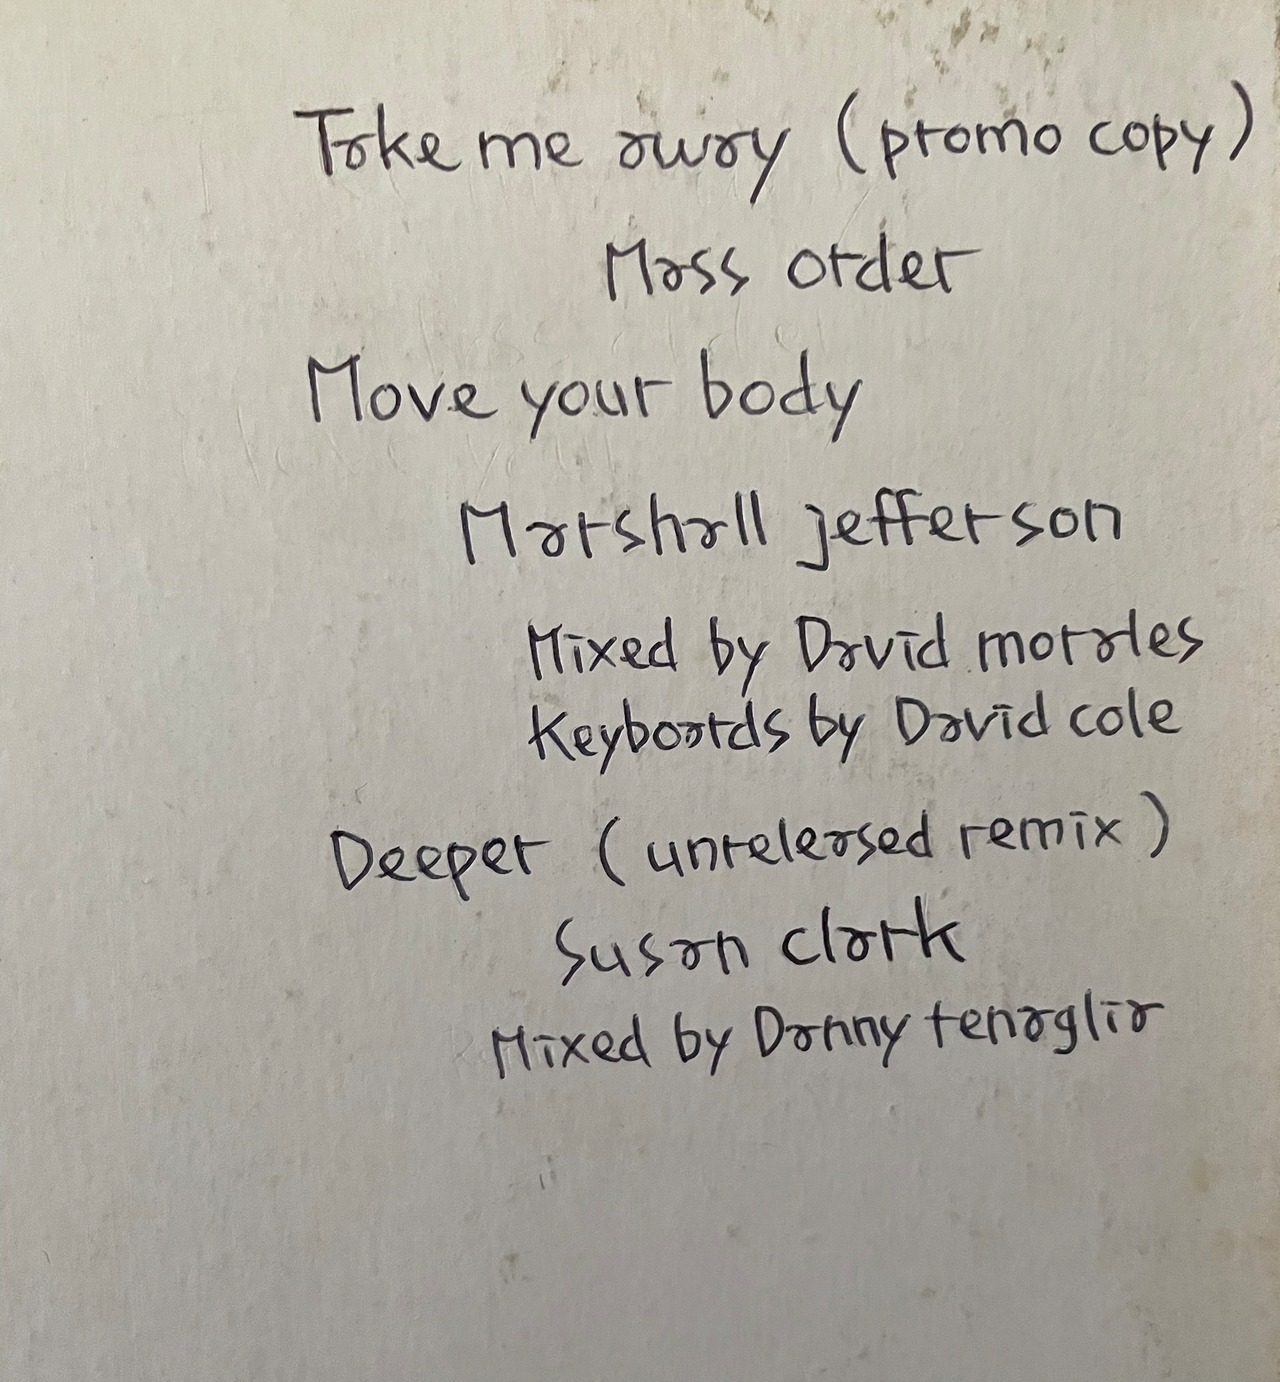 Take me away (promo copy)
Mass order
Move your body
Marshall jefferson
Mixed by David morales
Keyboards by David cole
Deeper (unreleased remix)
Susan clark
Mixed by Danny tenaglia